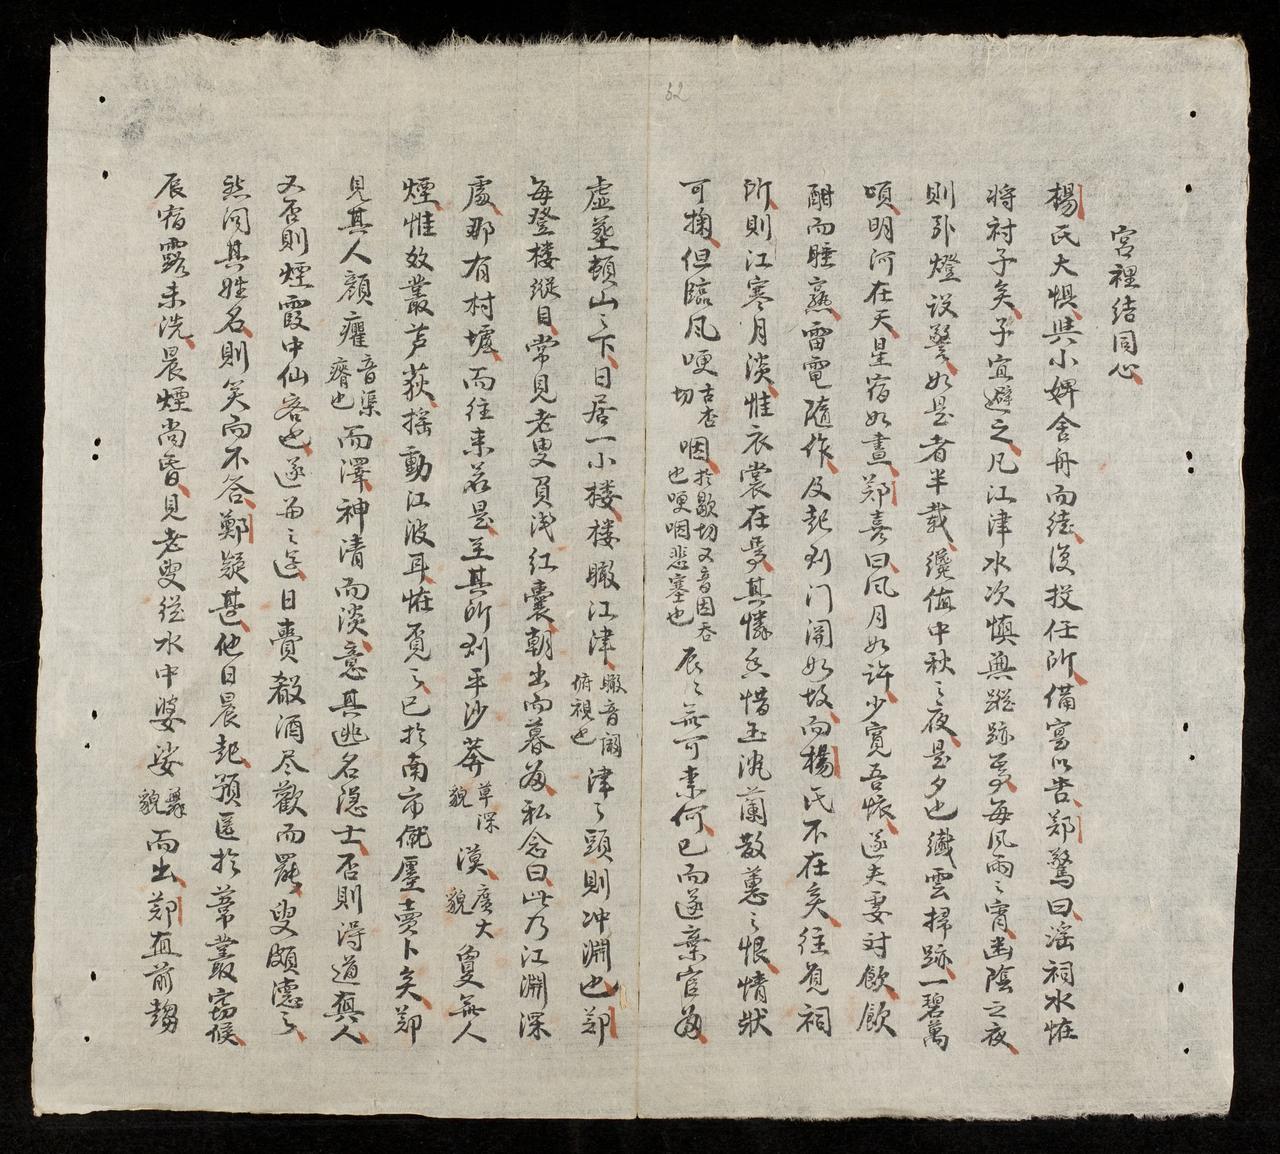 62
宮裡結同心
楊氏大惧與小婢舍舟而陸後投任所備寫以告鄭驚曰淫祠水恠
將衬子矣子宜避之凡江津水次慎無蹤跡焉每風雨之宵幽陰之夜
則引燈設警如是者半载纔值中秋之夜是夕也纖雲掃跡一碧萬
頃明河在天星宿如晝鄭喜曰风月如許少寬吾懷遂夫妻对飲飲
酣而睡熟雷電隨作及起則门闭如故而楊氏不在矣往見祠
所則江寒月淡惟衣裳在焉其憐香惜玉沉蘭散蕙之恨情狀
可掬但臨风哽古杏切咽於歇切又音因吞也哽咽悲塞也辰辰無可柰何已而遂棄官為
虛塟頓山之下日居一小楼楼瞰江津瞰音闞俯視也津之頭則冲渊也鄭
每登楼縱目常見老叟負浅红囊朝出而暮为私念曰此乃江渊深
處那有村墟而往来若是至其所則平沙莽草深貌漠廣大貌敻無人
煙惟數叢芦荻摇動江波耳恠覓之已於南市僦廛賣卜矣鄭
見其人顔癯音渠瘠也而澤神清而淡意其逃名隐士否則得道真人
又否則煙霞中仙客也遂為之迄日賣殽酒尽歡而罷叟頗德之
然问其姓名則笑而不答鄭疑甚他日晨起预匿於葦叢窃候
辰宿露未洗晨煙尚昏見老叟從水中婆娑舞貌而出鄭直前趨